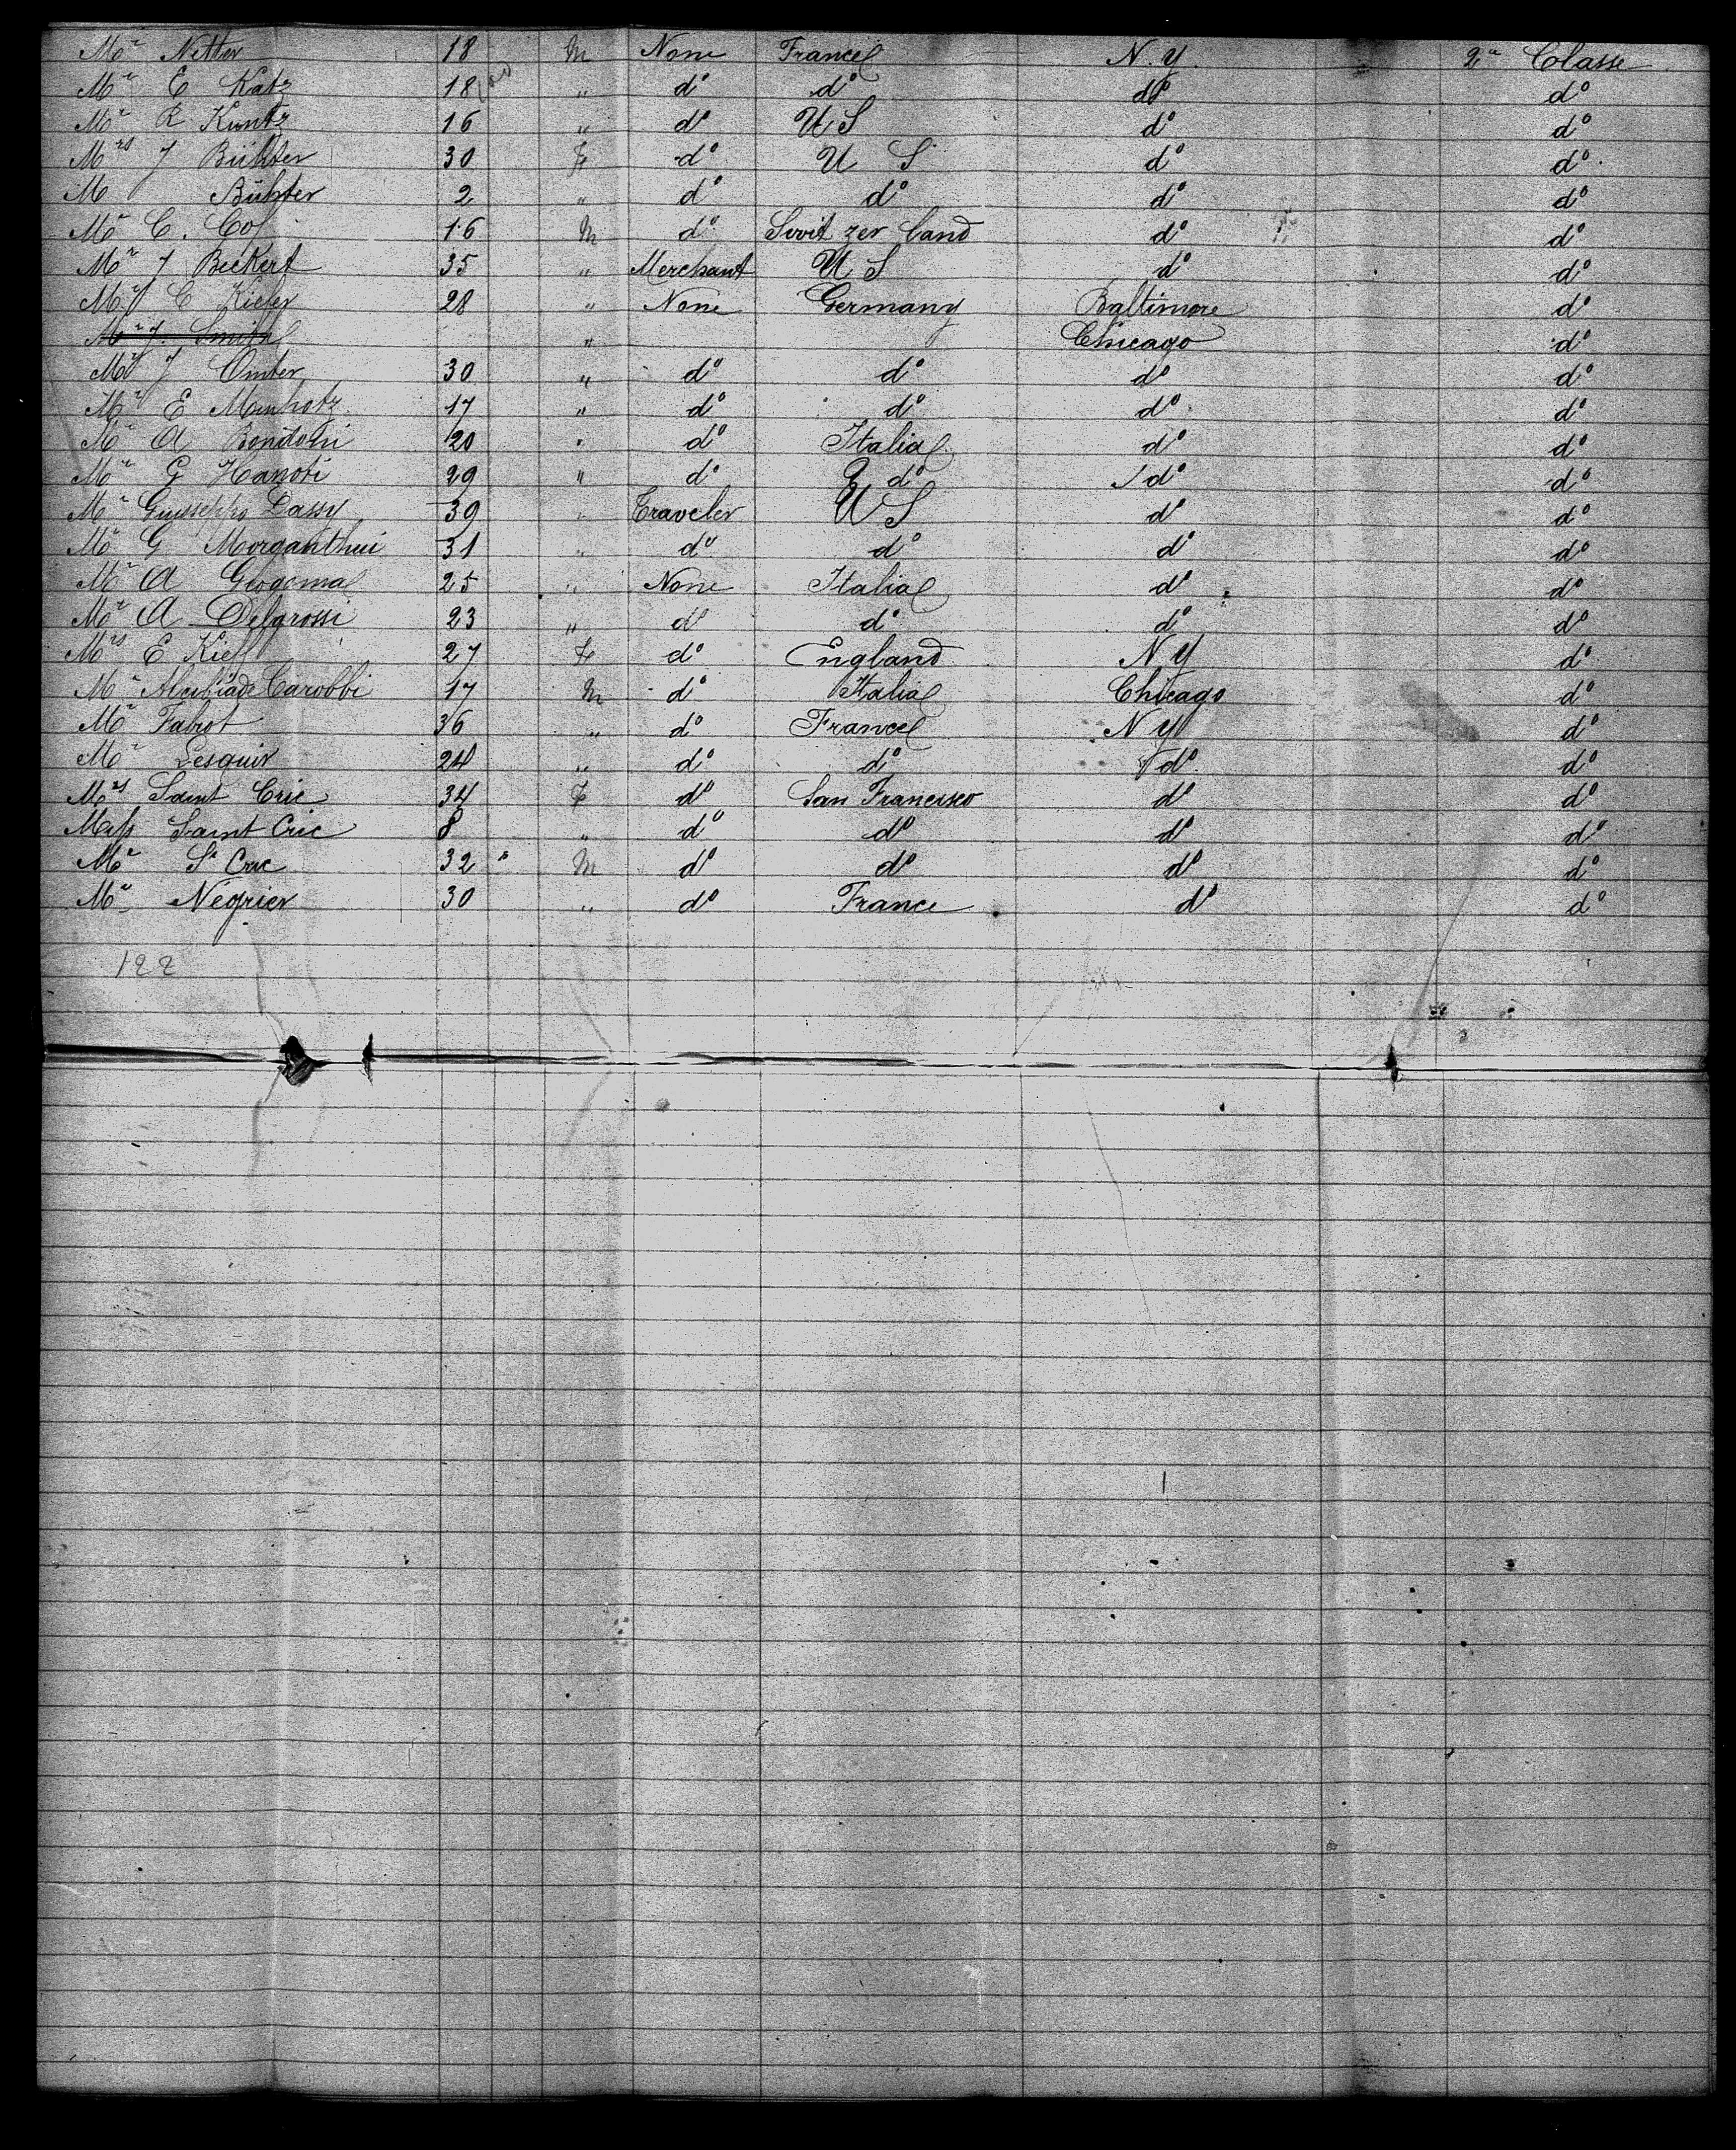 Mr Netter 18 M None France N. Y. 2e Classe
Mr E Katz 18 " do do do do
Mr R Kuntz 16 " do U S do do
Mrs J Buhter 30 F do U S do do
M Buhter 2 " do do do do
Mr C. Cof 16 M do Swit zer land do do
Mr J Beckert 35 " Merchant U S do do
Mr C Kiefer 28 " None Germany Baltimore do
Mr J. Smith " Chicago do
Mr J Omter 30 " do do do do
Mr E Munhotz 17 " do do do do
Mr A Bondolii 20 " do Italia do do
Mr G Hanoti 29 " do do do do
Mr Guisseppo Lassy 39 " Traveler U S do do
Mr G Morganthui 31 " do do do do
Mr A Giogoma 25 " None Italia do do
Mr A Delgrossi 23 " do do do do
Mrs E Kief 27 F do England N Y do
Mr Alcibiade Carobbi 17 M do Italia Chicago do
Mr Fabrot 36 " do France N Y do
Mr Lesguir 24 " do do do do
Mrs Saint Cric 34 F do San Francisco do do
Miss Saint Cric 8 " do do do do
Mr St Cric 32 " M do do do do
Mr Négrier 30 " do France do do
122